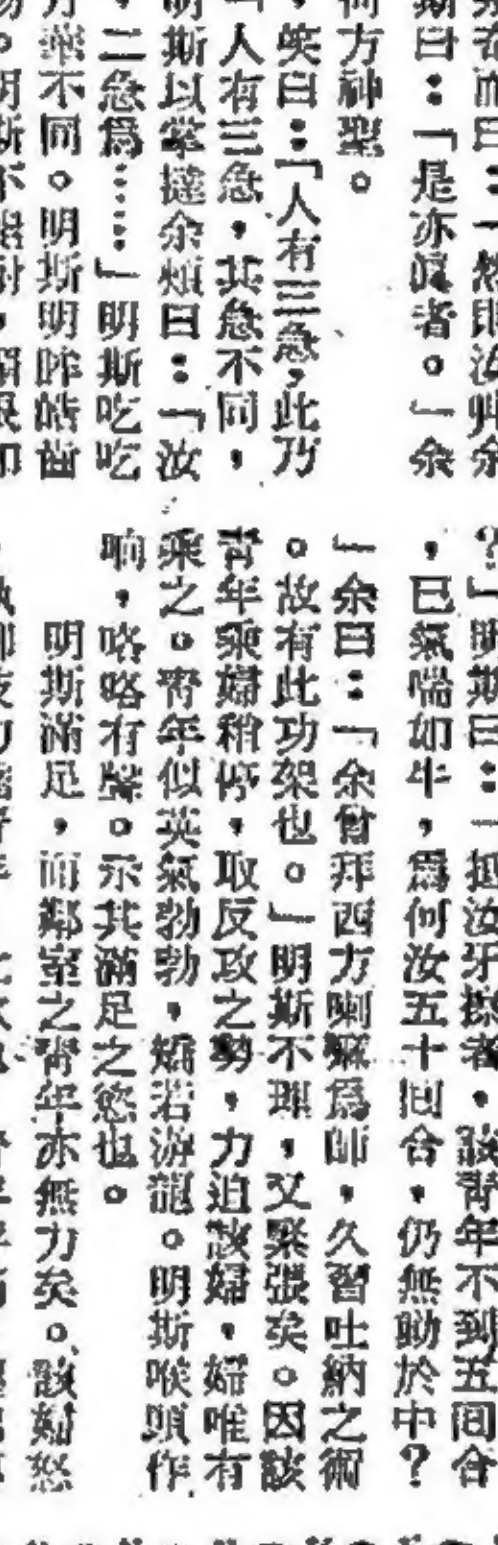 斯曰：「是亦眞者。」余
何方神聖。
，笑曰：「人有三急，此乃
「人有三急，其急不同，
明斯以掌撻余頰曰：「汝
，二急爲……」明斯吃吃
不同。明斯明眸皓齒
？」明斯曰：「挹汝牙擦者，該青年不到五回合
，已氣喘如牛，爲何汝五十回合，仍無動於中？
」余曰：「余曾拜西方喇嘛爲師，久習吐納之術
。故有此功架也。」明斯不理，又緊張矣。因該
青年乘婦稍停，取反攻之勢，力迫該婦，婦唯有
乘之。青年似英氣勃勃，矯若游龍。明斯喉頭作
响，咯咯有聲。示其滿足之慾也。
明斯滿足，而鄰室之青年亦無力矣。該婦怒